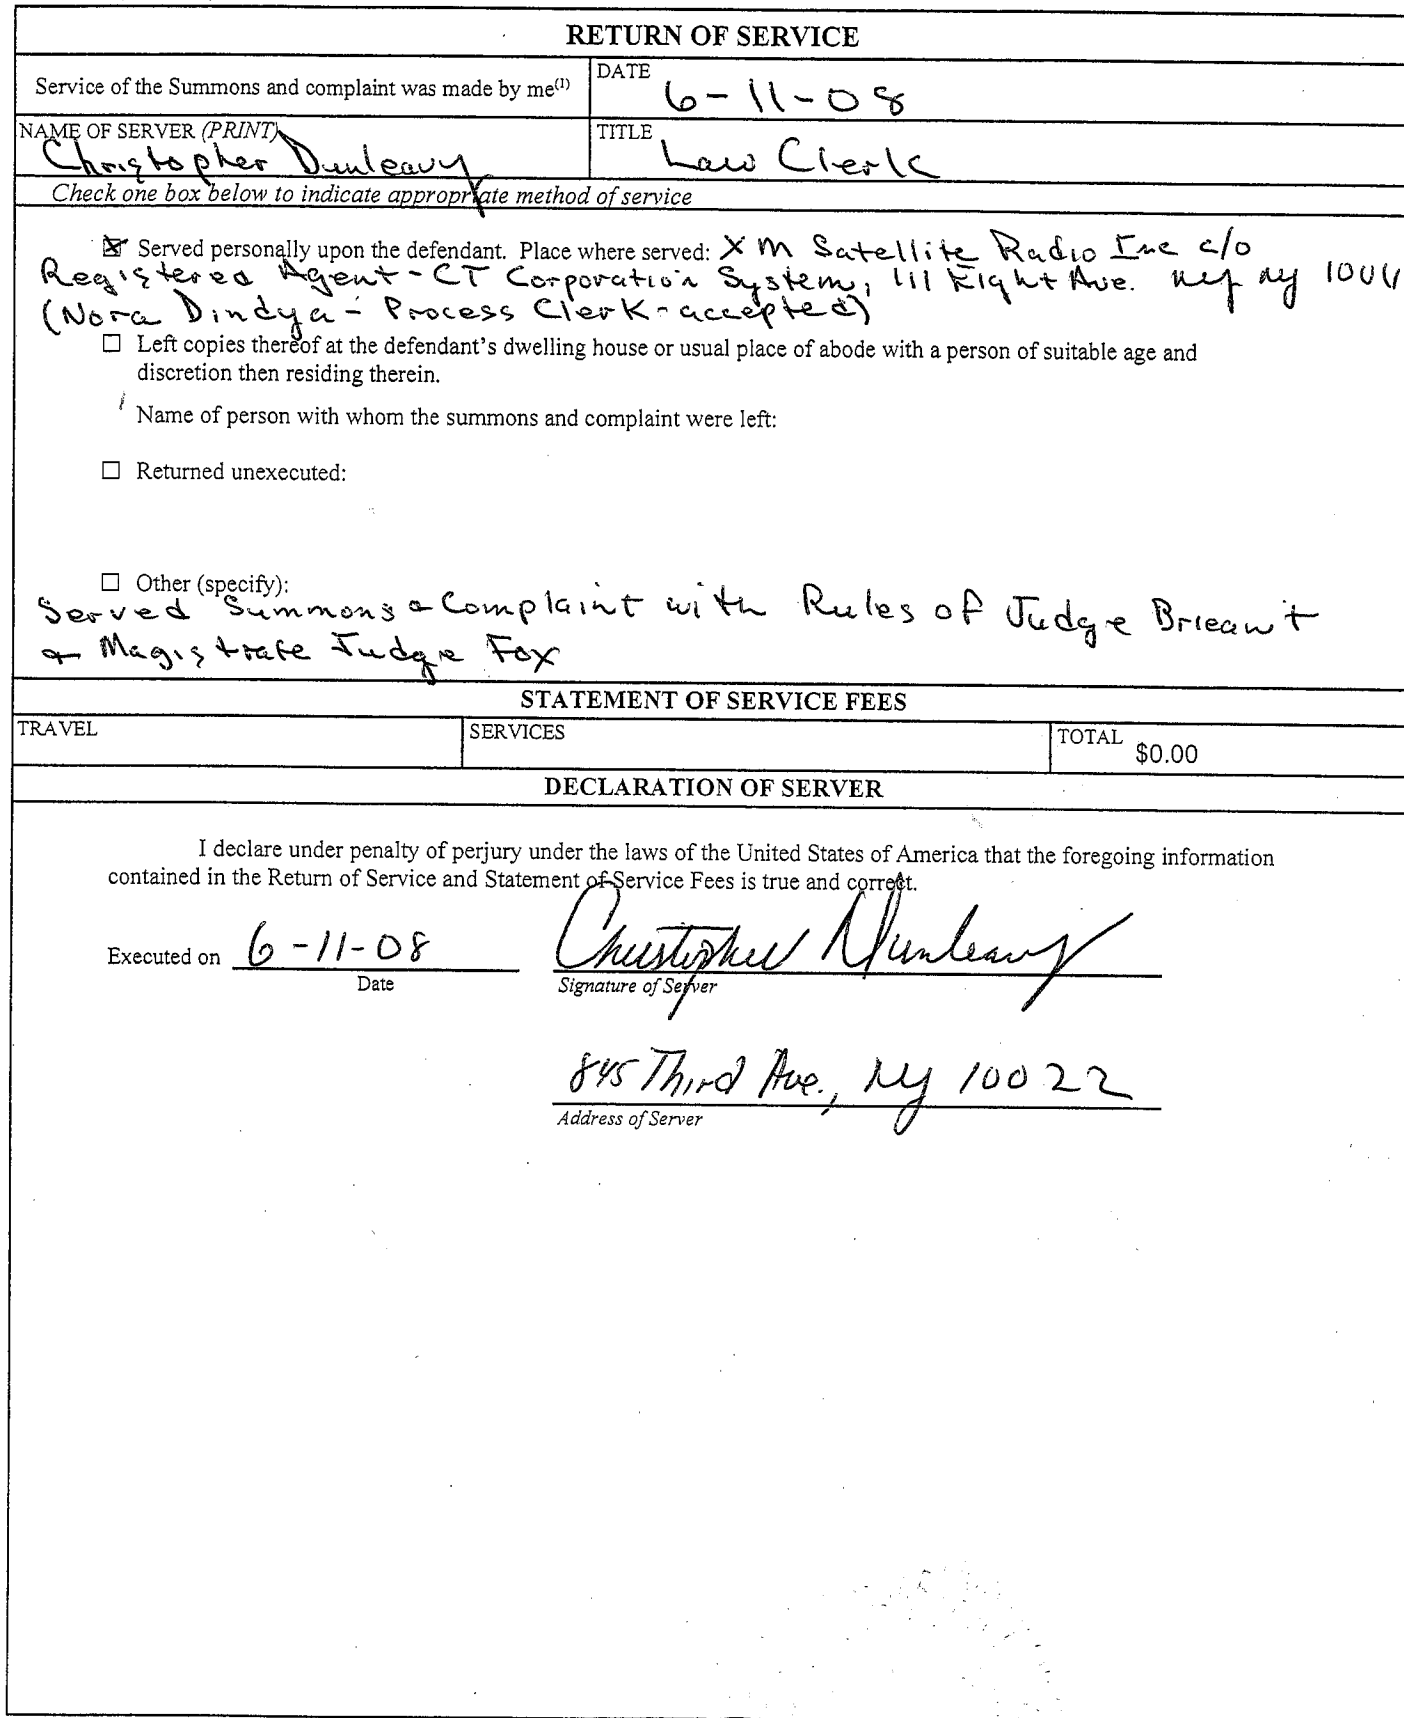 RETURN OF SERVICE
Service of the Summons and complaint was made by me(1)
DATE
6-11-08
NAME OF SERVER (PRINT)
Christopher Dunleavy
TITLE
Law Clerk
Check one box below to indicate appropriate method of service
☒ Served personally upon the defendant. Place where served: XM Satellite Radio Inc c/o
Registered Agent - CT Corporation System, 111 Eight Ave. NY NY
(Nora Dindya - Process Clerk - accepted)
☐ Left copies thereof at the defendant's dwelling house or usual place of abode with a person of suitable age and
discretion then residing therein.
Name of person with whom the summons and complaint were left:
☐ Returned unexecuted:
☐ Other (specify):
Served Summons & Complaint with Rules of Judge Brieant
& Magistrate Judge Fox
STATEMENT OF SERVICE FEES
TRAVEL
SERVICES
TOTAL
$0.00
DECLARATION OF SERVER
I declare under penalty of perjury under the laws of the United States of America that the foregoing information
contained in the Return of Service and Statement of Service Fees is true and correct.
Executed on 6-11-08
Christopher Dunleavy
Date
Signature of Server
845 Third Ave., NY 10022
Address of Server